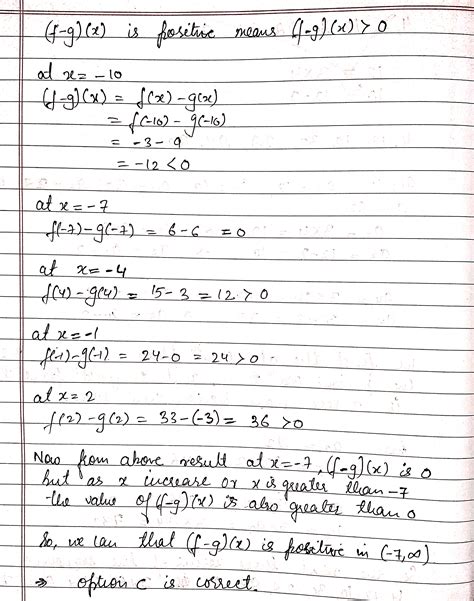 (f-g)(x) is positive means (f-g)(x) > 0
at x = -10
(f-g)(x) = f(x) - g(x)
= f(-10) - g(-10)
= -3 - 9
= -12 < 0
at x = -7
f(-7) - g(-7) = 6 - 6 = 0
at x = -4
f(4) - g(4) = 15 - 3 = 12 > 0
at x = -1
f(-1) - g(-1) = 24 - 0 = 24 > 0.
at x = 2
f(2) - g(2) = 33 - (-3) = 36 > 0
Now from above result at x = -7, (f-g)(x) is 0
but as x increase or x is greater than -7
the value of (f-g)(x) is also greater than 0
So, we can that (f-g)(x) is positive in (-7, ∞)
⇒ option C is correct.